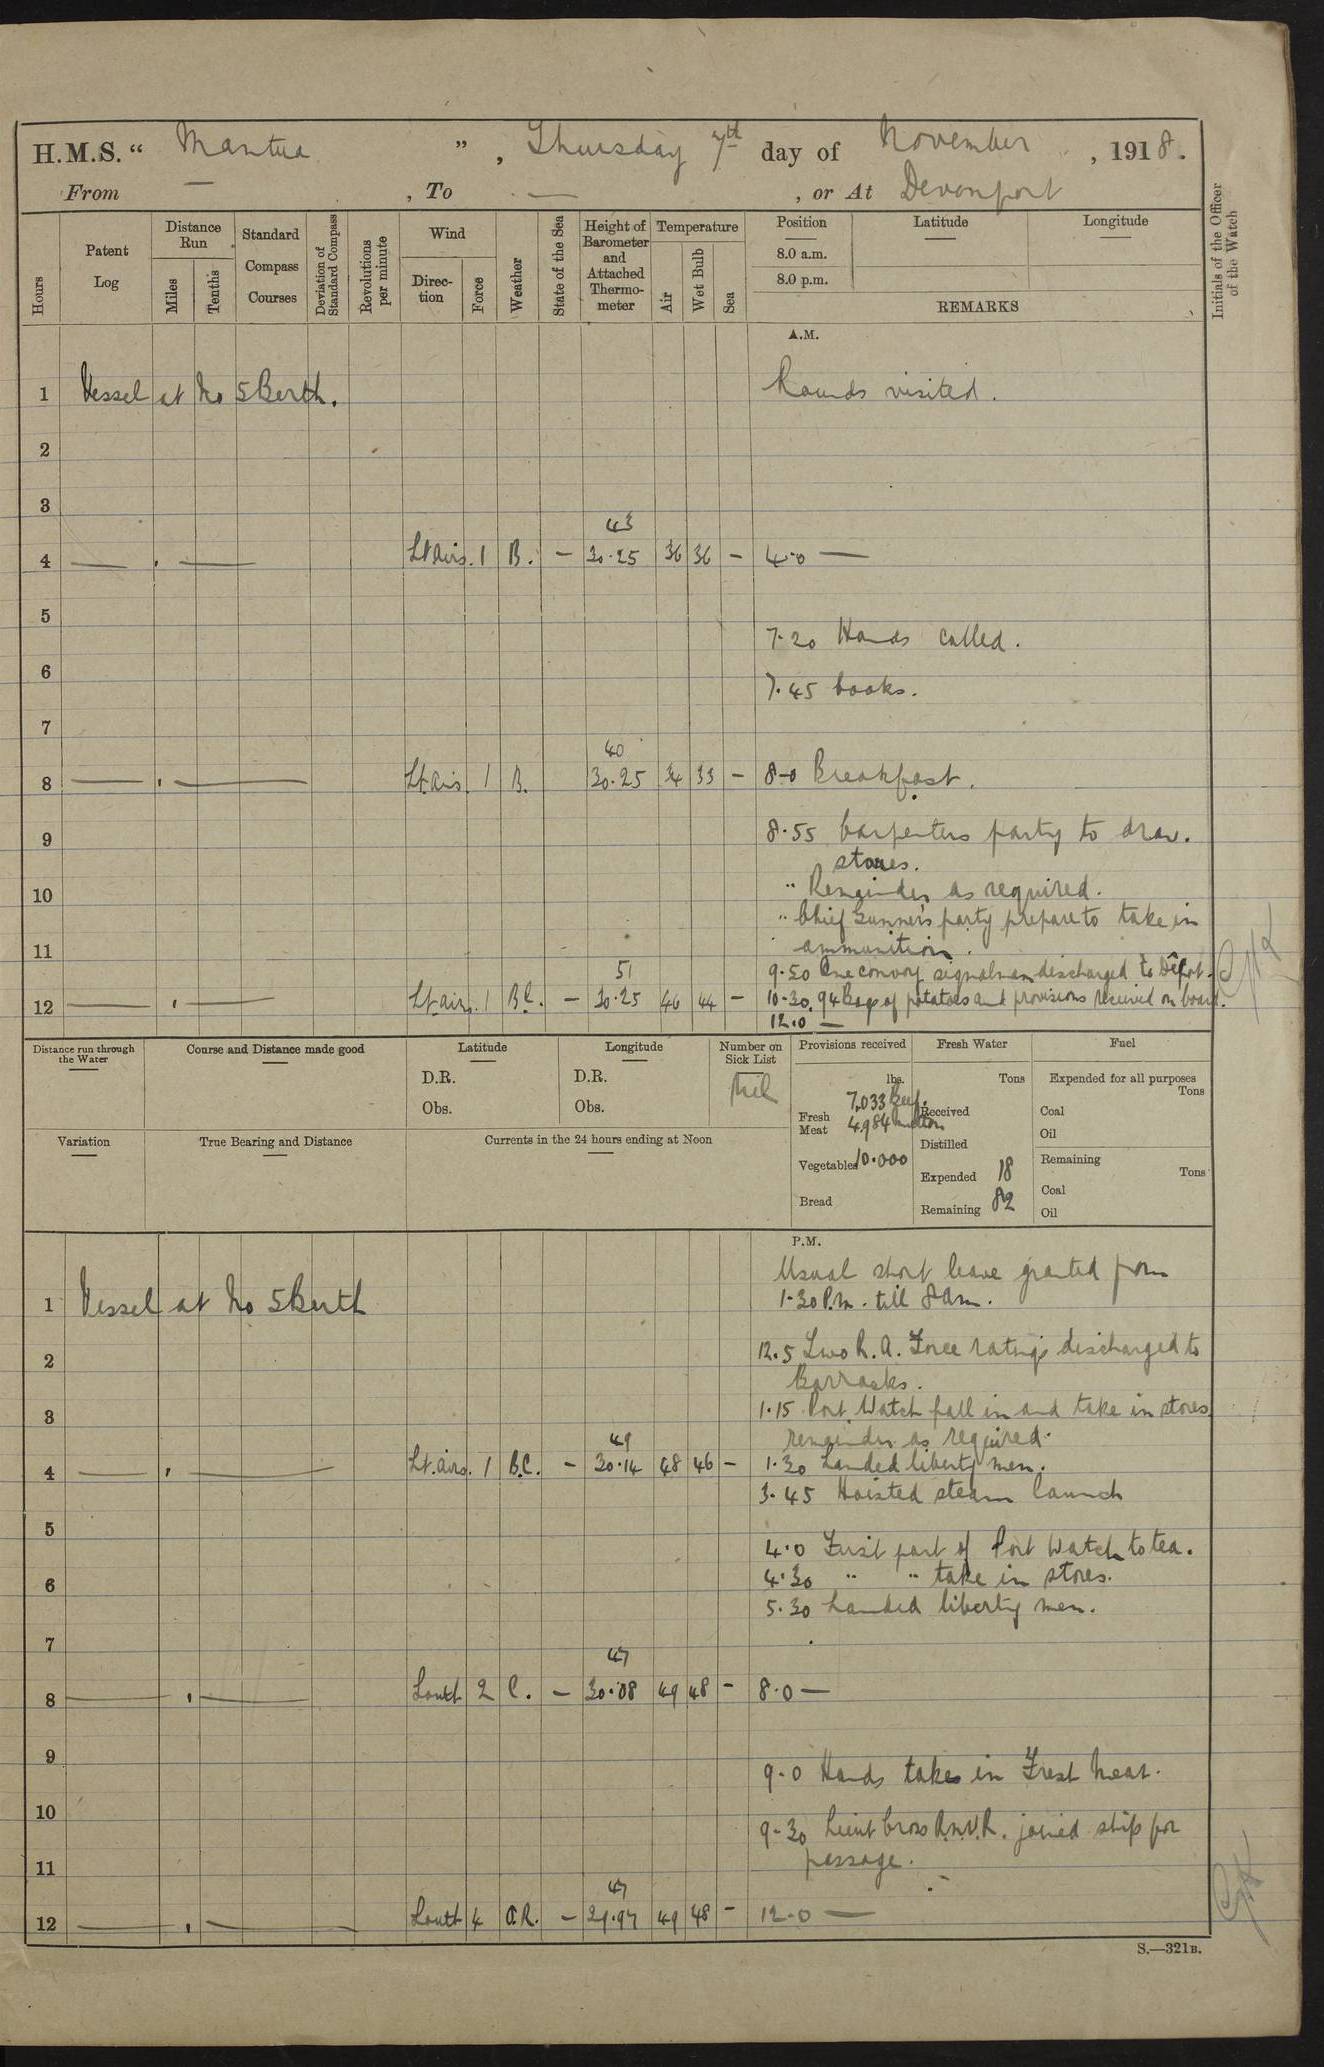 H.M.S. “ Mantua ” , Thursday 7th day of November , 1918.
From — , To — , or At Devonport
Hours
Patent Log
Distance Run
Miles
Tenths
Standard Compass Courses
Deviation of Standard Compass
Revolutions per minute
Wind
Direction
Force
Weather
State of the Sea
Height of Barometer and Attached Thermometer
Temperature
Air
Wet Bulb
Sea
Position
8.0 a.m.
8.0 p.m.
Latitude
Longitude
REMARKS
Initials of the Officer of the Watch
A.M.
1 Vessel at No 5 Berth. Rounds visited.
2
3
43
4 — . — Lt airs. 1 B. — 30.25 36 36 — 4.0 —
5
7.20 Hands called.
6
7.45 Cooks.
7
40
8 — . — Lt airs. 1 B. 30.25 34 33 — 8-0 Breakfast.
9 8.55 Carpenters party to draw.
stores.
10 " Remainder as required.
" Chief Gunner's party prepare to take in
11 ammunition.
51 9.50 One convoy signalman discharged to Dêpot.
12 — . — Lt airs. 1 B.C. — 30.25 46 44 — 10-30. 94 Bags of potatoes and provisions received on board.
12.0 —
Distance run through the Water
Course and Distance made good
Latitude
D.R.
Obs.
Longitude
D.R.
Obs.
Number on Sick List
Nil
Provisions received
lbs.
Fresh Meat 7,033 Beef.
4,984 mutton
Vegetables 10.000
Bread
Fresh Water
Tons
Received
Distilled
Expended 18
Remaining 82
Fuel
Expended for all purposes
Tons
Coal
Oil
Remaining
Tons
Coal
Oil
Variation
True Bearing and Distance
Currents in the 24 hours ending at Noon
P.M.
Usual short leave granted from
1 Vessel at No 5 Berth 1-30 P.M. till 8 am.
2 12.5 Two R.A. Force ratings discharged to
Barracks.
3 1.15 Port Watch fall in and take in stores
49 remainder as required.
4 — . — Lt. airs. 1 B.C. — 30.14 48 46 — 1.30 Landed liberty men.
3.45 Hoisted steam launch
5
4.0 First part of Port Watch to tea.
6 4.30 " " take in stores.
5.30 Landed liberty men.
7
47
8 — . — South 2 C. — 30.08 49 48 — 8.0 —
9
9.0 Hands takes in Fresh Meat.
10
9-30 Lieut Cross R.N.V.R. joined ship for
11 passage.
47
12 — . — South 4 C.R. — 29.97 49 48 — 12.0 —
S.—321B.